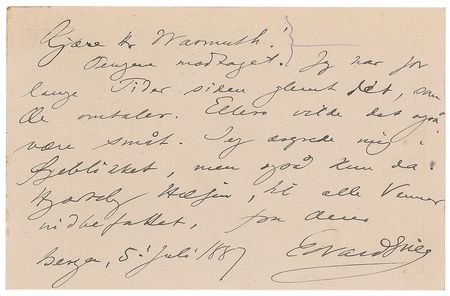 Kjære Hr Warmuth!
Pengene modtaget. Jeg har for
lange Tider siden glemt det, som
De omtaler. Ellers vilde det også
være småt. Jeg ærgrede mig i
Øjeblikket, men også kun da.
Hjertelig Hilsen, til alle Venner
indbefattet, fra Deres
Bergen, 5 Juli 1887
Edvard Grieg